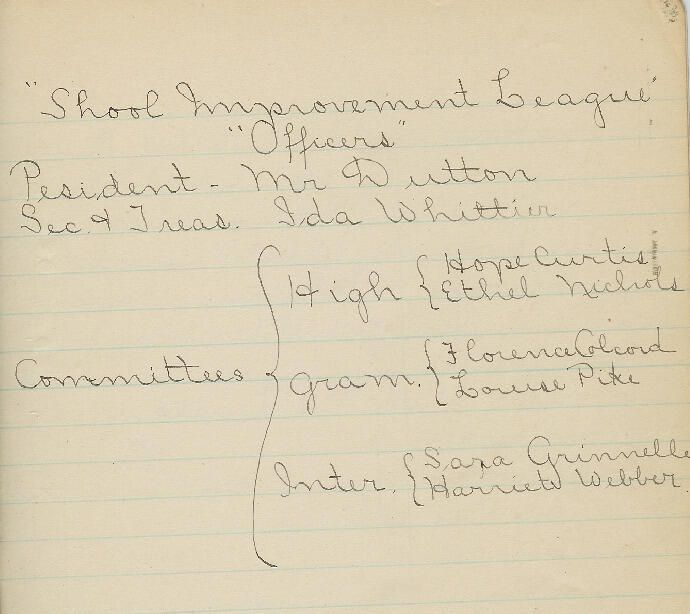 "Shool Improvement League"
"Officers"
Pesident - Mr Dutton
Sec. & Treas. Ida Whittier
Committees
High
Hope Curtis
Ethel Nichols
gram.
Florence Colcord
Louise Pike
Inter.
Sara Grinnelle
Harriet Webber.